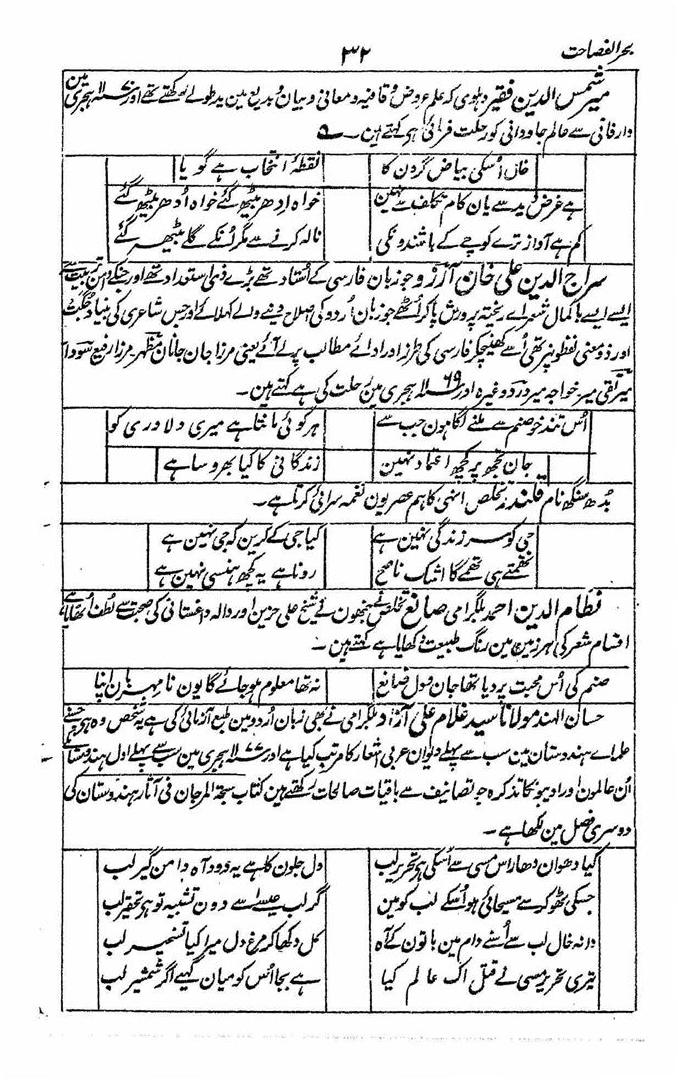 بحر الفصاحت
۳۲
میر شمس الدین فقیر دہلوی کہ علم عروض و قافیہ و معانی و بیان و بدیع مین ید طولے رکھتے تھے اور ہجری مین
دار فانی سے عالم جاودانی کو رحلت فرمائی ہی کہتے ہین۔
خال اسکی بیاض گردن کا
نقطۂ انتخاب ہے گویا
ہے غرض دید سے یان کام تکلف سے نہین
خواہ ادھر بیٹھ گئے خواہ اُدھر بیٹھ گئے
کم ہے آواز ترے کوچے کے باشندونکی
نالہ کرنے سے مگر انکے گلے بیٹھ گئے
سراج الدین علی خان آرزو جو زبان فارسی کے اُستاد تھے بڑے ذی استعداد تھے اور جنکے دامن تربیت سے
ایسے ایسے باکمال شعراے ریختہ پرورش پاکر اُٹھے جو زبان اُردو کی اصلاح دینے والے کہلائے اور جس شاعری کی بنیاد جگت
اور ذو معنی لفظونپر تھی اُسے کھینچکر فارسی کی طرز اور ادائے مطالب پر لے آئے یعنی مرزا جان جانان مظہر مرزا رفیع سودا
میر تقی میر خواجہ میر درد وغیرہ اور ۱۱۶۹ ہجری مین رحلت کی ہے کہتے ہین۔
اُس تند خو صنم سے ملنے لگا ہون جب سے
ہر کوئی مانتا ہے میری دلاوری کو
جان تجھ پر کچھ اعتماد نہین
زندگانی کا کیا بھروسا ہے
بُدھ سنگھ نام قلندر تخلص انہی کا ہم عصر یون نغمہ سرائی کرتا ہے۔
جی کو سر زندگی نہین ہے
کیا جی کے کرین کہ جی نہین ہے
تھمتے ہی تھمے گا اشک ناصح
رونا ہے یہ کچھ ہنسی نہین ہے
نظام الدین احمد بلگرامی صانع تخلص جنھون نے شیخ علی حزین اور والہ داغستانی کی صحبت سے لطف اُٹھایا ہے
اقسام شعر کی ہر زمین مین رنگ طبیعت دکھایا ہے کہتے ہین۔
صنم کی اُس محبت پر دیا تھا جان و دل صانع
نہ تھا معلوم ہو جائے گا یون نامہربان اپنا
حسان الہند مولانا سید غلام علی آزاد بلگرامی نے بھی زبان اُردو مین طبع آزمائی کی ہے یہ شخص وہ ہی جسنے
علماے ہندوستان مین سب سے پہلے دیوان عربی اشعار کا مرتب کیا ہے اور ۱۱۷۷ ہجری مین سب سے پہلے اول ہندوستان کے
اُن عالمون اور ادیبونکا تذکرہ جو تصانیف سے باقیات صالحات رکھتے ہین کتاب سبحۃ المرجان فی آثار ہندوستان کی
دوسری فصل مین لکھا ہے۔
کیا دھوان دھار اس مسی سے اُسکی ہی تحریر لب
دل جلون کا ہے یہ دود آہ دامن گیر لب
جسکی ٹھوکر سے مسیحائی ہو اُسکے لب کو مین
گر لب عیسے سے دون تشبیہ تو ہی تحقیر لب
دانہ خال لب سے اُسنے دام مین باتون کے آہ
کل دکھا کر مرغ دل میرا کیا تسخیر لب
تیری تحریر مسی نے قتل اک عالم کیا
ہے بجا اُس کو میان کہیے اگر شمشیر لب